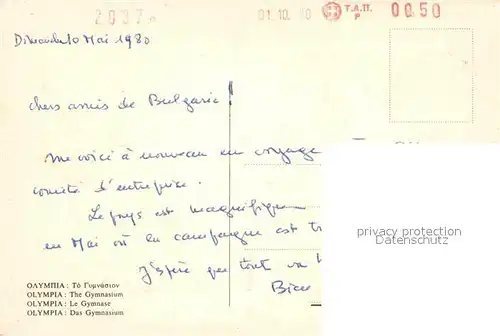 2037
01.10. 80 Τ.Α.Π. P 00.50
Dimanche 10 Mai 1980
chers amis de Bulgarie
me voici à nouveau en voyage
comité d'entreprise.
Le pays est magnifique
en Mai où la campagne est
J'espère que tout va
privacy protection
Datenschutz
ΟΛΥΜΠΙΑ : Τό Γυμνάσιον
OLYMPIA : The Gymnasium
OLYMPIA : Le Gymnase
OLYMPIA : Das Gymnasium